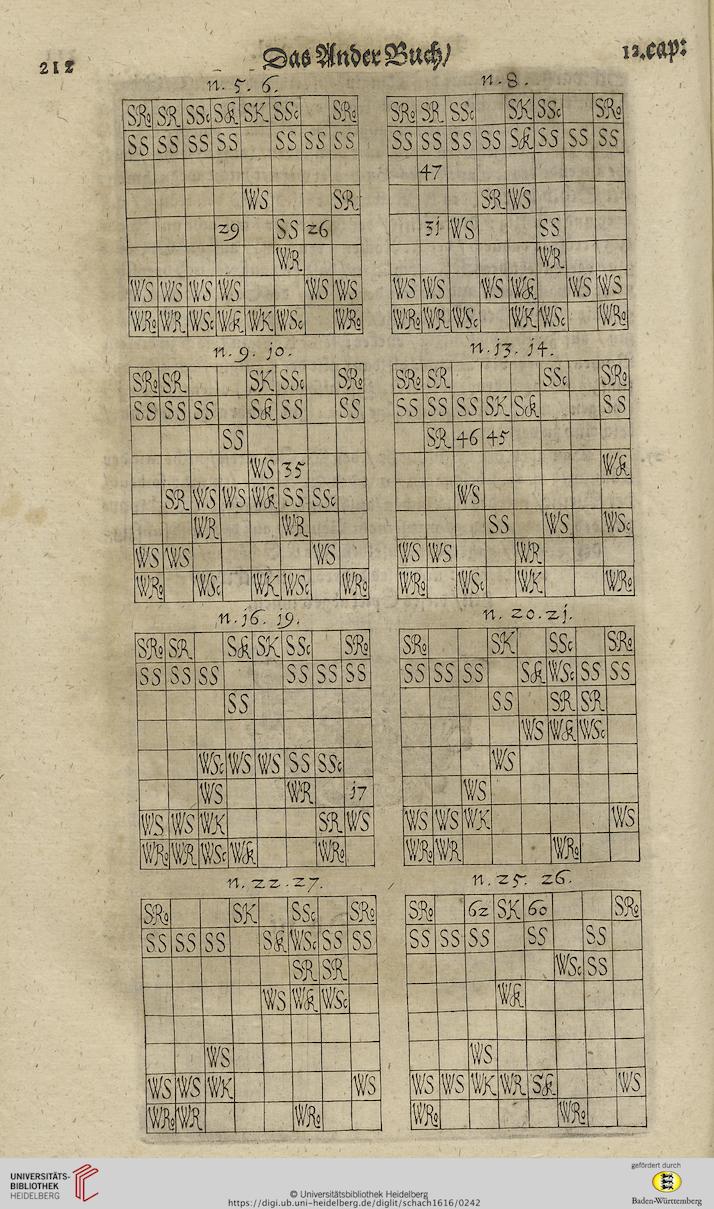 212 Das Ander Buch/ 12.cap:
n. 5. 6.
SRo SR SSc Sk SK SSc SRo
SS SS SS SS SS SS SS
WS SR
29 SS 26
WR
WS WS WS WS WS WS
WRo WR WSc Wk WK WSc WRo
n. 8.
SRo SR SSc SK SSc SRo
SS SS SS SS Sk SS SS SS
47
SR WS
31 WS SS
WR
WS WS WS Wk WS WS
WRo WR WSc WK WSc WRo
n. 9. jo.
SRo SR SK SSc SRo
SS SS SS Sk SS SS
SS
WS 35
SR WS WS Wk SS SSc
WR WR
WS WS WS
WRo WSc WK WSc WRo
n. j3. j4.
SRo SR SSc SRo
SS SS SS SK Sk SS
SR 46 45
Wk
WS
SS WS WSc
WS WS WR
WRo WSc WK WRo
n. j6. j9.
SRo SR Sk SK SSc SRo
SS SS SS SS SS SS
SS
WSc WS WS SS SSc
WS WR j7
WS WS WK SR WS
WRo WR WSc Wk WRo
n. 20. 2j.
SRo SK SSc SRo
SS SS SS Sk WSc SS SS
SS SR SR
WS Wk WSc
WS
WS
WS WS WK WS
WRo WR WRo
n. 22. 27.
SRo SK SSc SRo
SS SS SS Sk WSc SS SS
SR SR
WS Wk WSc
WS
WS WS WK WS
WRo WR WRo
n. 25. 26.
SRo 62 SK 60 SRo
SS SS SS SS SS
WSc SS
Wk
WS
WS WS WK WR Sk WS
WRo WRo
UNIVERSITÄTS-
BIBLIOTHEK
HEIDELBERG
© Universitätsbibliothek Heidelberg
https://digi.ub.uni-heidelberg.de/diglit/schach1616/0242
gefördert durch
Baden-Württemberg